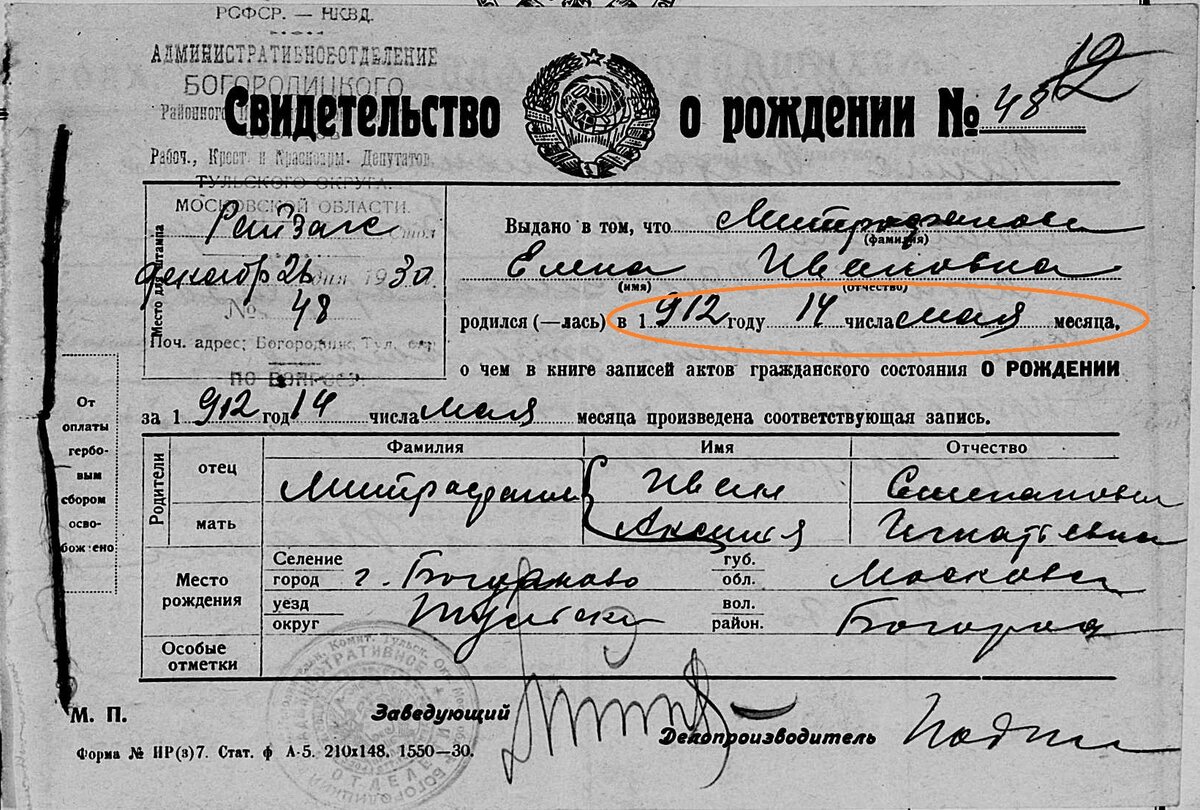 РСФСР. — НКВД.
АДМИНИСТРАТИВНОЕ ОТДЕЛЕНИЕ
БОГОРОДИЦКОГО
Районного
Свидетельство о рождении № 48
12
Рабоч., Крест. и Красноарм. Депутатов
ТУЛЬСКОГО ОКРУГА.
МОСКОВСКОЙ ОБЛАСТИ.
Место для штампа
РайЗагс Стол
декабр 26 дня 1930
№ 48
Поч. адрес: Богородицк, Тул. окр.
ПО ВОПРОСУ:
Выдано в том, что Митрофанова
(фамилия)
Елена Ивановна
(имя) (отчество)
родился (—лась) в 1912 году 14 числа мая месяца,
о чем в книге записей актов гражданского состояния О РОЖДЕНИИ
за 1912 год 14 числа мая месяца произведена соответствующая запись.
От
оплаты
гербо-
вым
сбором
осво-
бождено
Родители
Фамилия Имя Отчество
отец Митрофанов Иван Степанович
мать Аксинья Игнатьевна
Место
рождения
Селение
город г.
губ.
обл. Москов
уезд
округ Тульски
вол.
район. Богород
Особые
отметки
М. П.
Заведующий
Делопроизводитель
Форма № НР(з)7. Стат. ф А-5. 210х148. 1550—30.